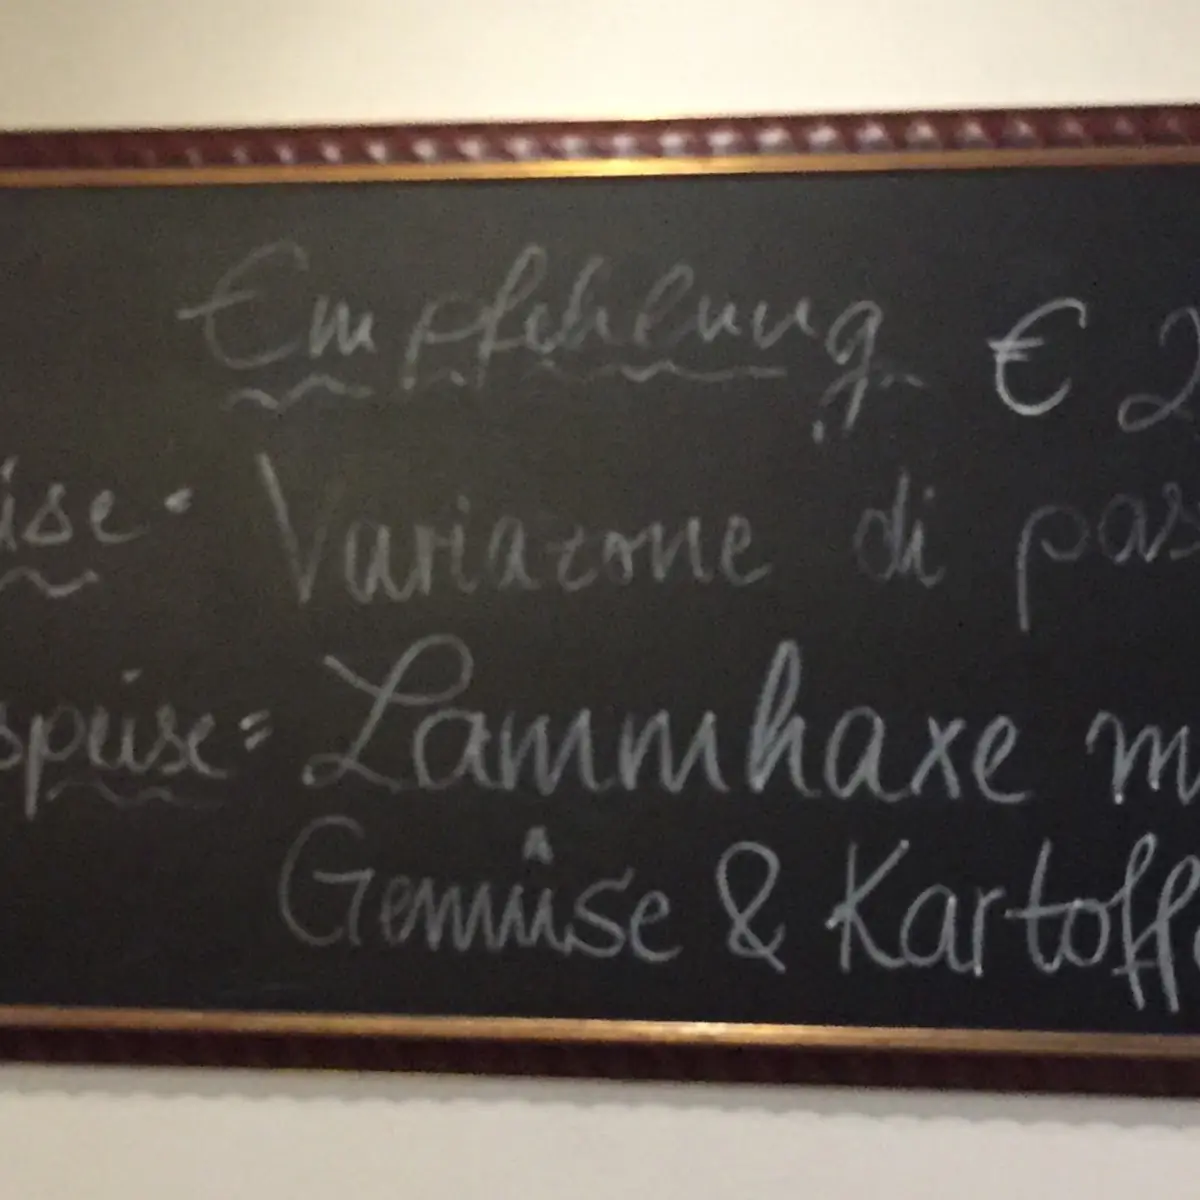 Empfehlung € 2
ise. Variazone di pas
speise= Lammhaxe m
Gemüse & Kartoffe